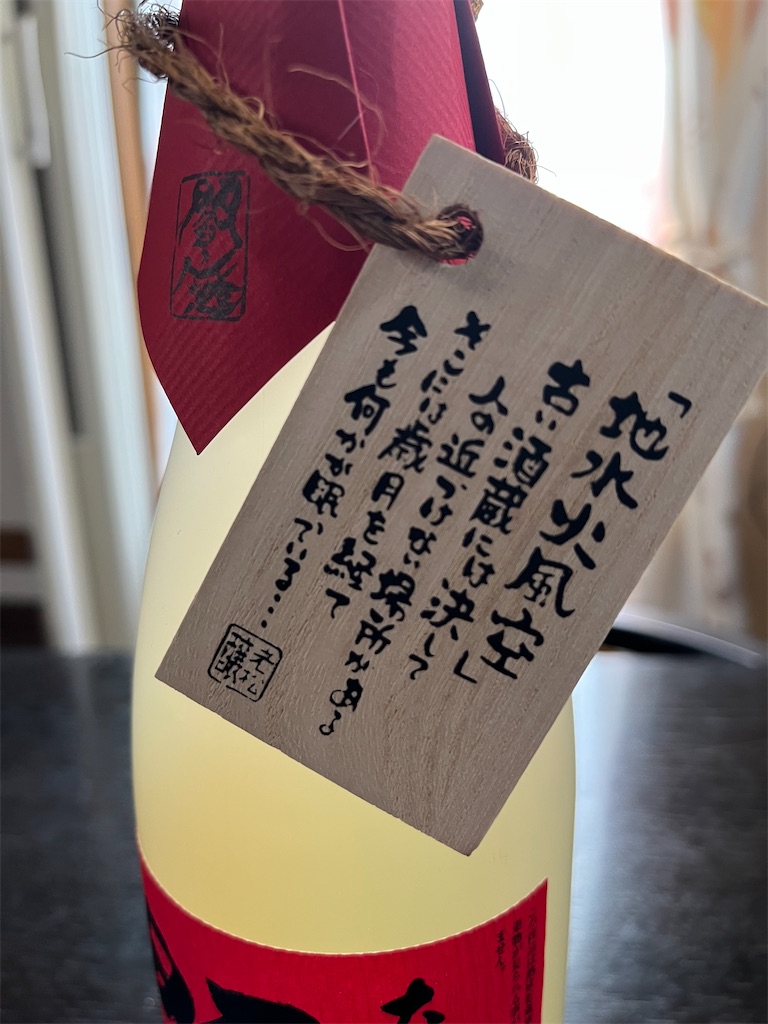 閻魔
「地水火風空」
古い酒蔵には決して
人の近づけない場所がある
そこには歳月を経て
今も何かが眠っている…
老松